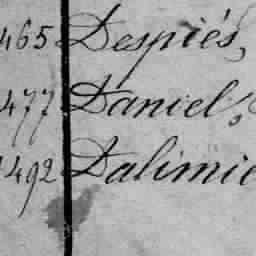 465 Despiés,
477 Daniel,
1492 Dalimie